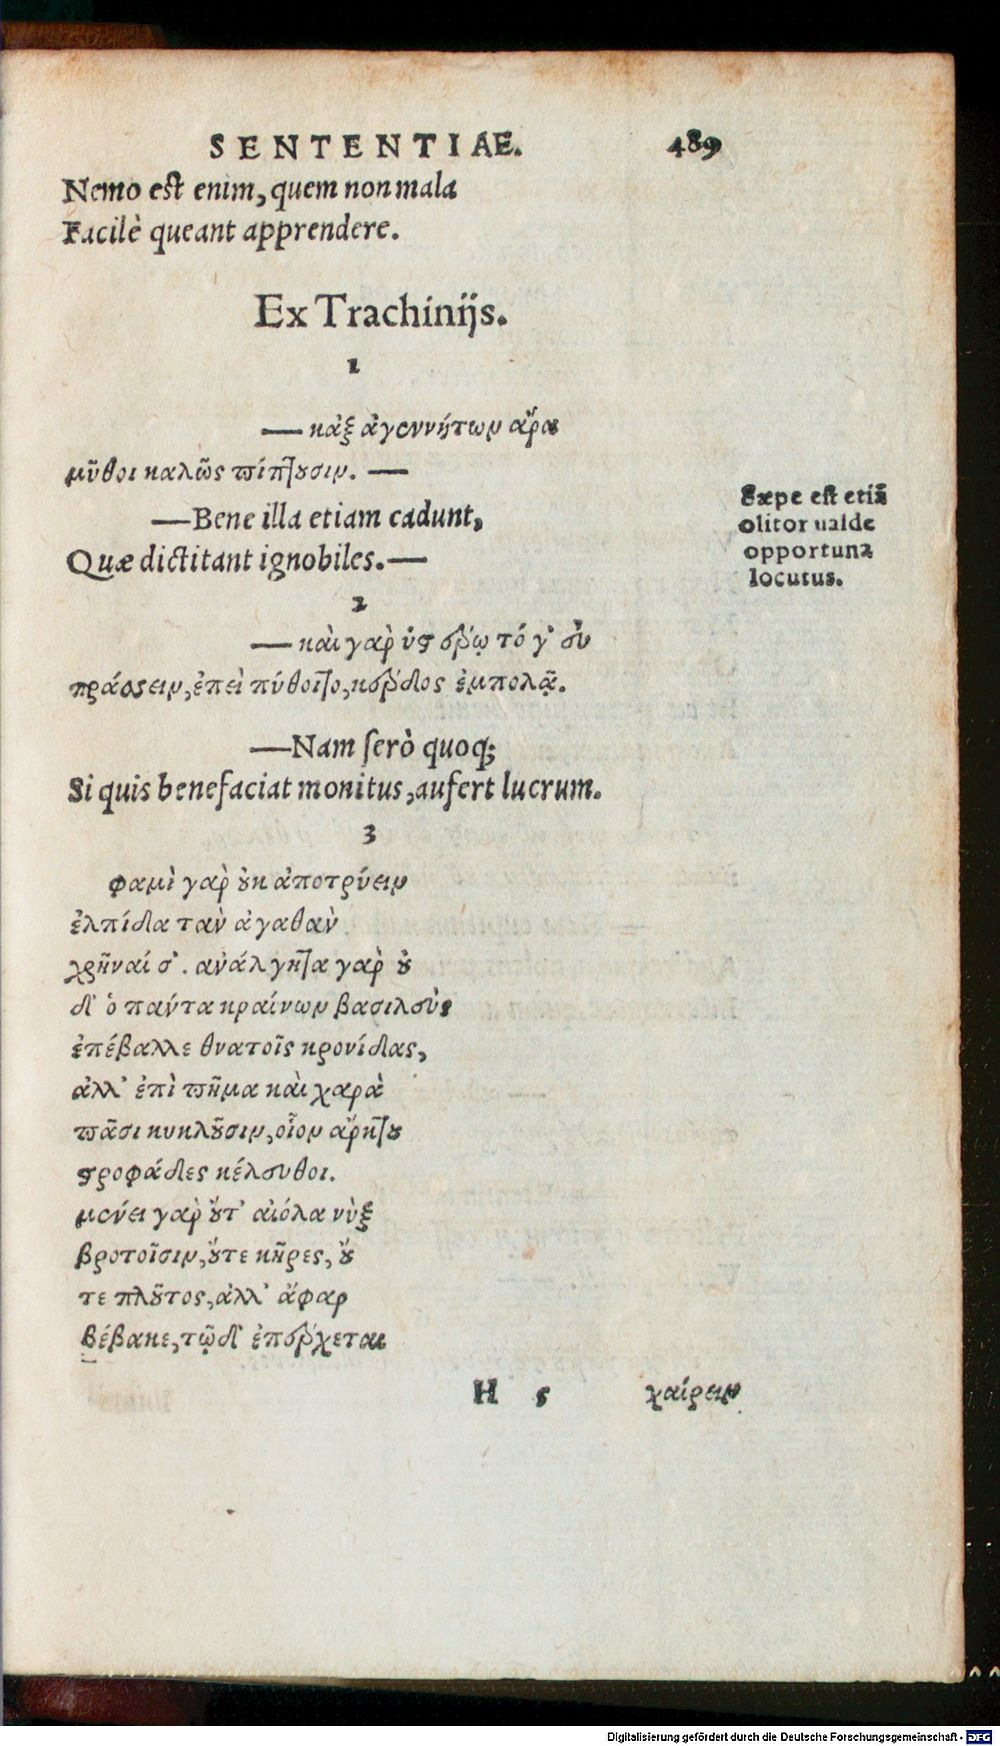 SENTENTIAE. 489
Nemo est enim, quem non mala
Facilè queant apprendere.
Ex Trachinijs.
1
— κἀξ ἀγεννήτων ἄρα
μῦθοι καλῶς πίπτουσιν. —
—Bene illa etiam cadunt,
Quæ dictitant ignobiles.—
Sæpe est etiã
olitor ualde
opportuna
locutus.
2
— καὶ γὰρ ὑστέρῳ τό γ' εὖ
πράσσειν, ἐπεὶ πύθοιτο, κέρδος ἐμπολᾷ.
—Nam serò quoq;
Si quis benefaciat monitus, aufert lucrum.
3
φαμὶ γὰρ οὐκ ἀποτρύειν
ἐλπίδα τὰν ἀγαθὰν
χρῆναί σ'. ἀνάλγητα γὰρ οὐ
δ' ὁ πάντα κραίνων βασιλεὺς
ἐπέβαλλε θνατοῖς κρονίδας,
ἀλλ' ἐπὶ πῆμα καὶ χαρὰ
πᾶσι κυκλοῦσιν, οἷον ἄρκτου
στροφάδες κέλευθοι.
μένει γὰρ οὔτ' αἰόλα νὺξ
βροτοῖσιν, οὔτε κῆρες, οὔ
τε πλοῦτος, ἀλλ' ἄφαρ
βέβακε, τῷ δ' ἐπέρχεται
H 5 χαίρειν
Digitalisierung gefördert durch die Deutsche Forschungsgemeinschaft - DFG